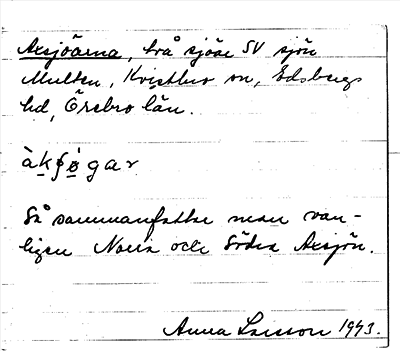 Axsjöarna, två sjöar SV sjön
Multen, Kvistbro sn, Edsbergs
hd, Örebro län.
àkʃøgar
Så sammanfattar man van-
ligen Norra och Södra Axsjön.
Anna Larsson 1943.